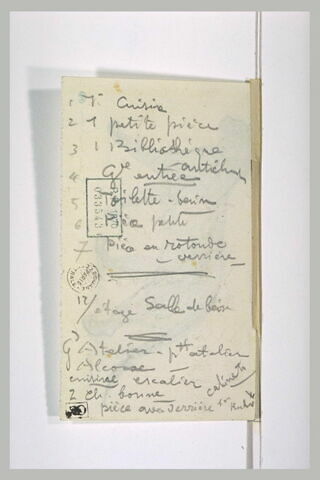 1 1 Cuisine
2 1 petite pièce
3 1 Bibliothèque
4 Gde entrée antichb
5 Toilette - bain
6 pièce petite
7 Pièce en rotonde
verrière
12/ étage Salle de bain
Gd Atelier - ptt atelier
Alcove
cuisine escalier
2 ch. bonne
cabinets
pièce avec verrière